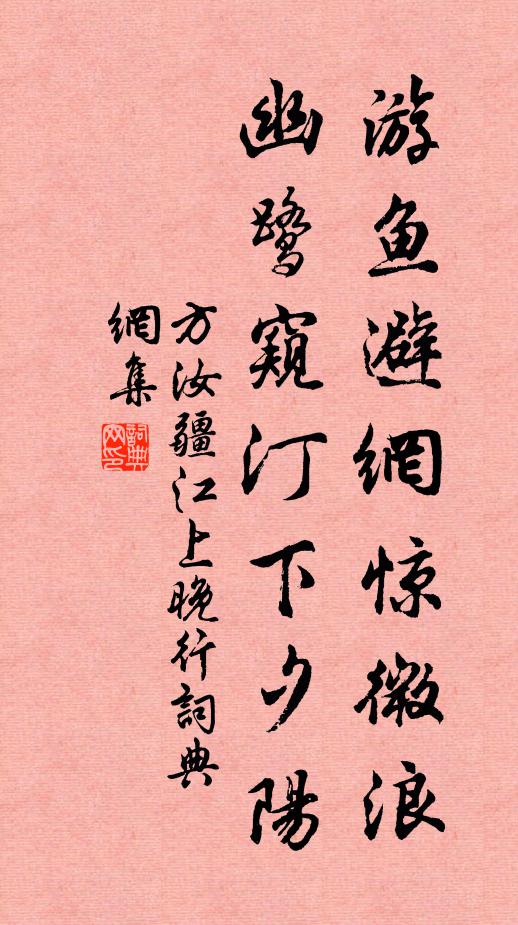 游鱼避網惊微浪
幽鹭窥汀下夕陽
方汝疆江上晚行詞典
網集
詞典
网印